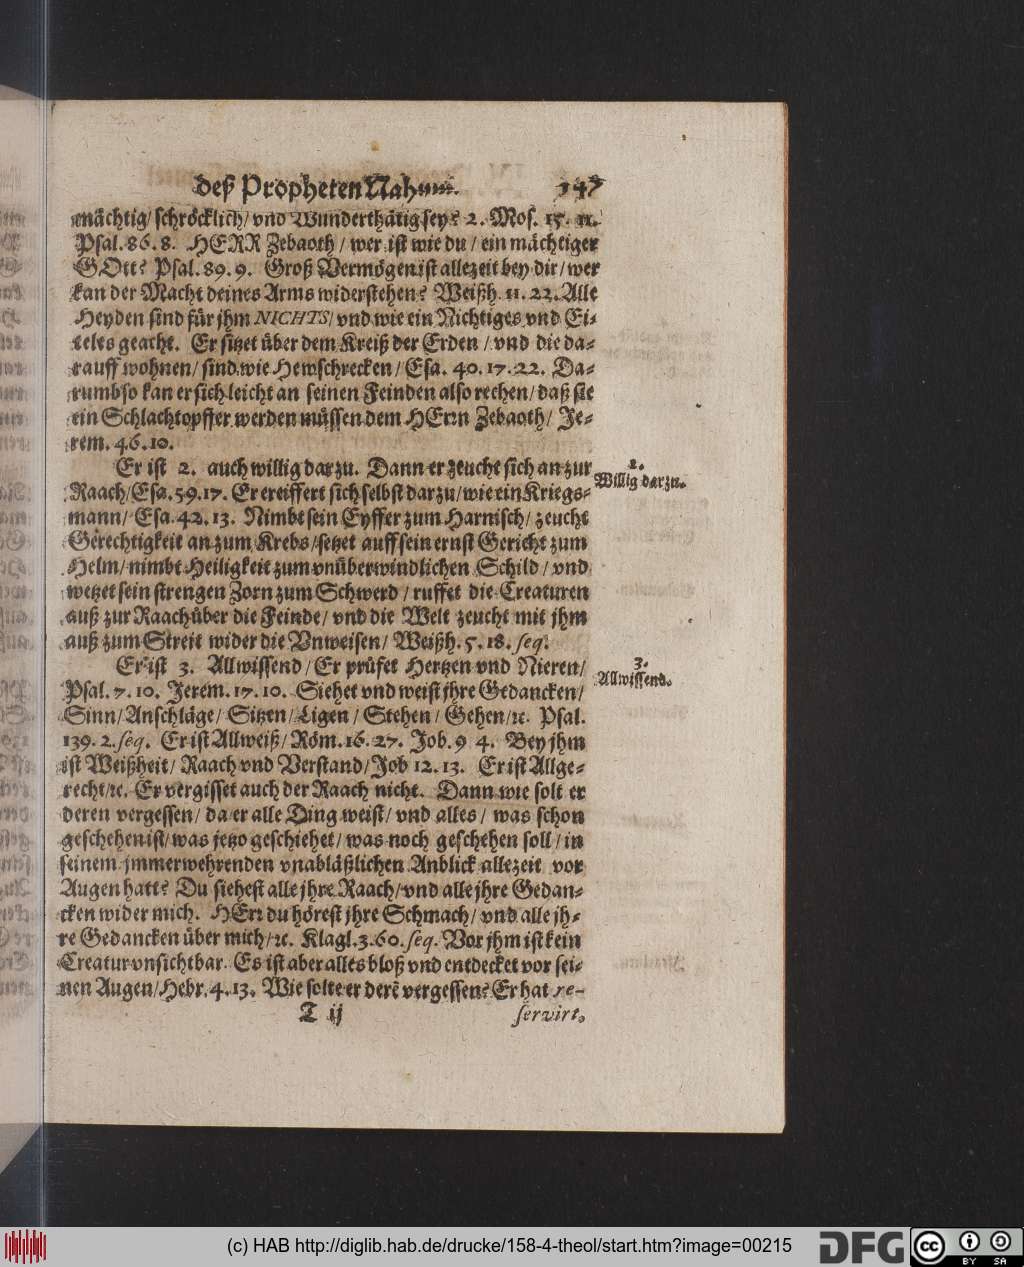 deß Propheten Nahum. 147
mächtig/ schröcklich/ vnd Wunderthätig sey? 2. Mos. 15. 11.
Psal. 86. 8. HERR Zebaoth / wer ist wie du / ein mächtiger
GOtt? Psal. 89. 9. Groß Vermögen ist allezeit bey dir/ wer
kan der Macht deines Arms widerstehen? Weißh. 11. 22. Alle
Heyden sind für jhm NICHTS/ vnd wie ein Nichtiges vnd Ei-
teles geacht. Er sitzet über dem Kreiß der Erden / vnd die da-
rauff wohnen/ sind wie Hewschrecken / Esa. 40. 17. 22. Da-
rumb so kan er sich leicht an seinen Feinden also rechen/ daß sie
ein Schlachtopffer werden müssen dem HErꝛn Zebaoth/ Je-
rem. 46. 10.
Er ist 2. auch willig darzu. Dann er zeucht sich an zur
2.
Willig darzu.
Raach/ Esa. 59. 17. Er ereiffert sich selbst darzu/ wie ein Kriegs-
mann/ Esa. 42. 13. Nimbt sein Eyffer zum Harnisch/ zeucht
Gerechtigkeit an zum Krebs /setzet auff sein ernst Gericht zum
Helm/ nimbt Heiligkeit zum vnüberwindlichen Schild / vnd
wetzet sein strengen Zorn zum Schwerd / ruffet die Creaturen
auß zur Raach über die Feinde/ vnd die Welt zeucht mit jhm
auß zum Streit wider die Vnweisen/ Weißh. 5. 18. seq.
Er ist 3. Allwissend/ Er prüfet Hertzen vnd Nieren/
3.
Allwissend.
Psal. 7. 10. Jerem. 17. 10. Siehet vnd weist jhre Gedancken/
Sinn/ Anschläge/ Sitzen/ Ligen / Stehen/ Gehen/ ꝛc. Psal.
139. 2. seq. Er ist Allweiß/ Röm. 16. 27. Job. 9 4. Bey jhm
ist Weißheit/ Raach vnd Verstand/ Job 12. 13. Er ist Allge-
recht/ꝛc. Er vergisset auch der Raach nicht. Dann wie solt er
deren vergessen/ da er alle Ding weist/ vnd alles / was schon
geschehen ist/ was jetzo geschiehet/ was noch geschehen soll / in
seinem jmmerwehrenden vnabläßlichen Anblick allezeit vor
Augen hatt? Du siehest alle jhre Raach/ vnd alle jhre Gedan-
cken wider mich. HErꝛ du hörest jhre Schmach/ vnd alle jh-
re Gedancken über mich/ ꝛc. Klagl. 3. 60. seq. Vor jhm ist kein
Creatur vnsichtbar. Es ist aber alles bloß vnd entdecket vor sei-
nen Augen/ Hebr. 4. 13. Wie solte er derẽ vergessen? Er hat re-
T ij servirt.
(c) HAB http://diglib.hab.de/drucke/158-4-theol/start.htm?image=00215
DFG
cc BY SA